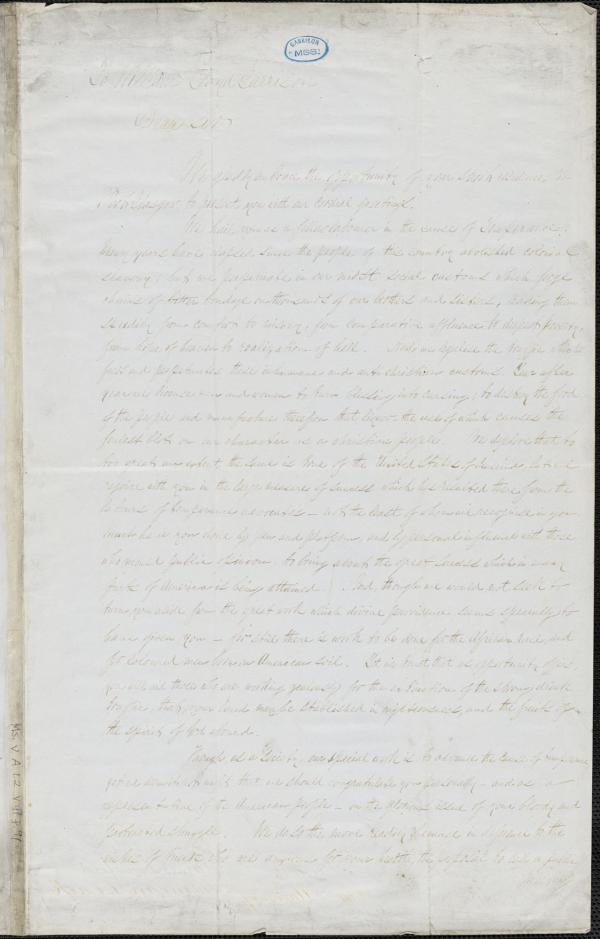 GARRISON
MSS.
To William Lloyd Garrison
Dear Sir
We gladly embrace the opportunity of your short residence in
Glasgow to present you with our cordial greetings.
We hail you as a fellow labourer in the cause of Temperance.
Many years have elapsed since the people of this country abolished colonial
slavery; but we perpetuate in our midst social customs which forge
chains of bitter bondage on thousands of our brothers and sisters, leading them
steadily from comfort to misery, from comparative affluence to deepest poverty,
from hope of heaven to realization of hell. And we license the traffic which
feeds and perpetuates these inhumane and anti christian customs. Year after
year we license men and women to turn blessing into cursing; to destroy the food
of the people and manufacture therefrom that liquor the use of which causes the
foulest blot on our character as a christian people. We deplore that to
too great an extent, the same is true of the United States of America, but we
rejoice with you in the large measure of success which has resulted there from the
labours of temperance advocates – not the least of whom we recognise in you.
Much has been done by pen and platform, and by personal influence with those
who mould public opinion, to bring about the great success which in many
parts of America is being attained. And, though we would not seek to
turn you aside from the great work which divine providence seems specially to
have given you – for still there is work to be done for the African race, and
for coloured men born on American soil. It is trust that as opportunity offers,
you will aid those who are working for the extinction of the strong drink
traffic, that your land may be established in righteousness, and the fruits of
the spirit of God abound.
Though, as a Society, our special work is to advance the cause of temperance
yet we that we should congratulate you personally – and as a
representative of the American people – on the glorious issue of your bloody and
protracted struggle. We do so the more readily in deference to the
wishes of friends who are anxious for your health, the to ask a public
MS. A. 1.2 V.